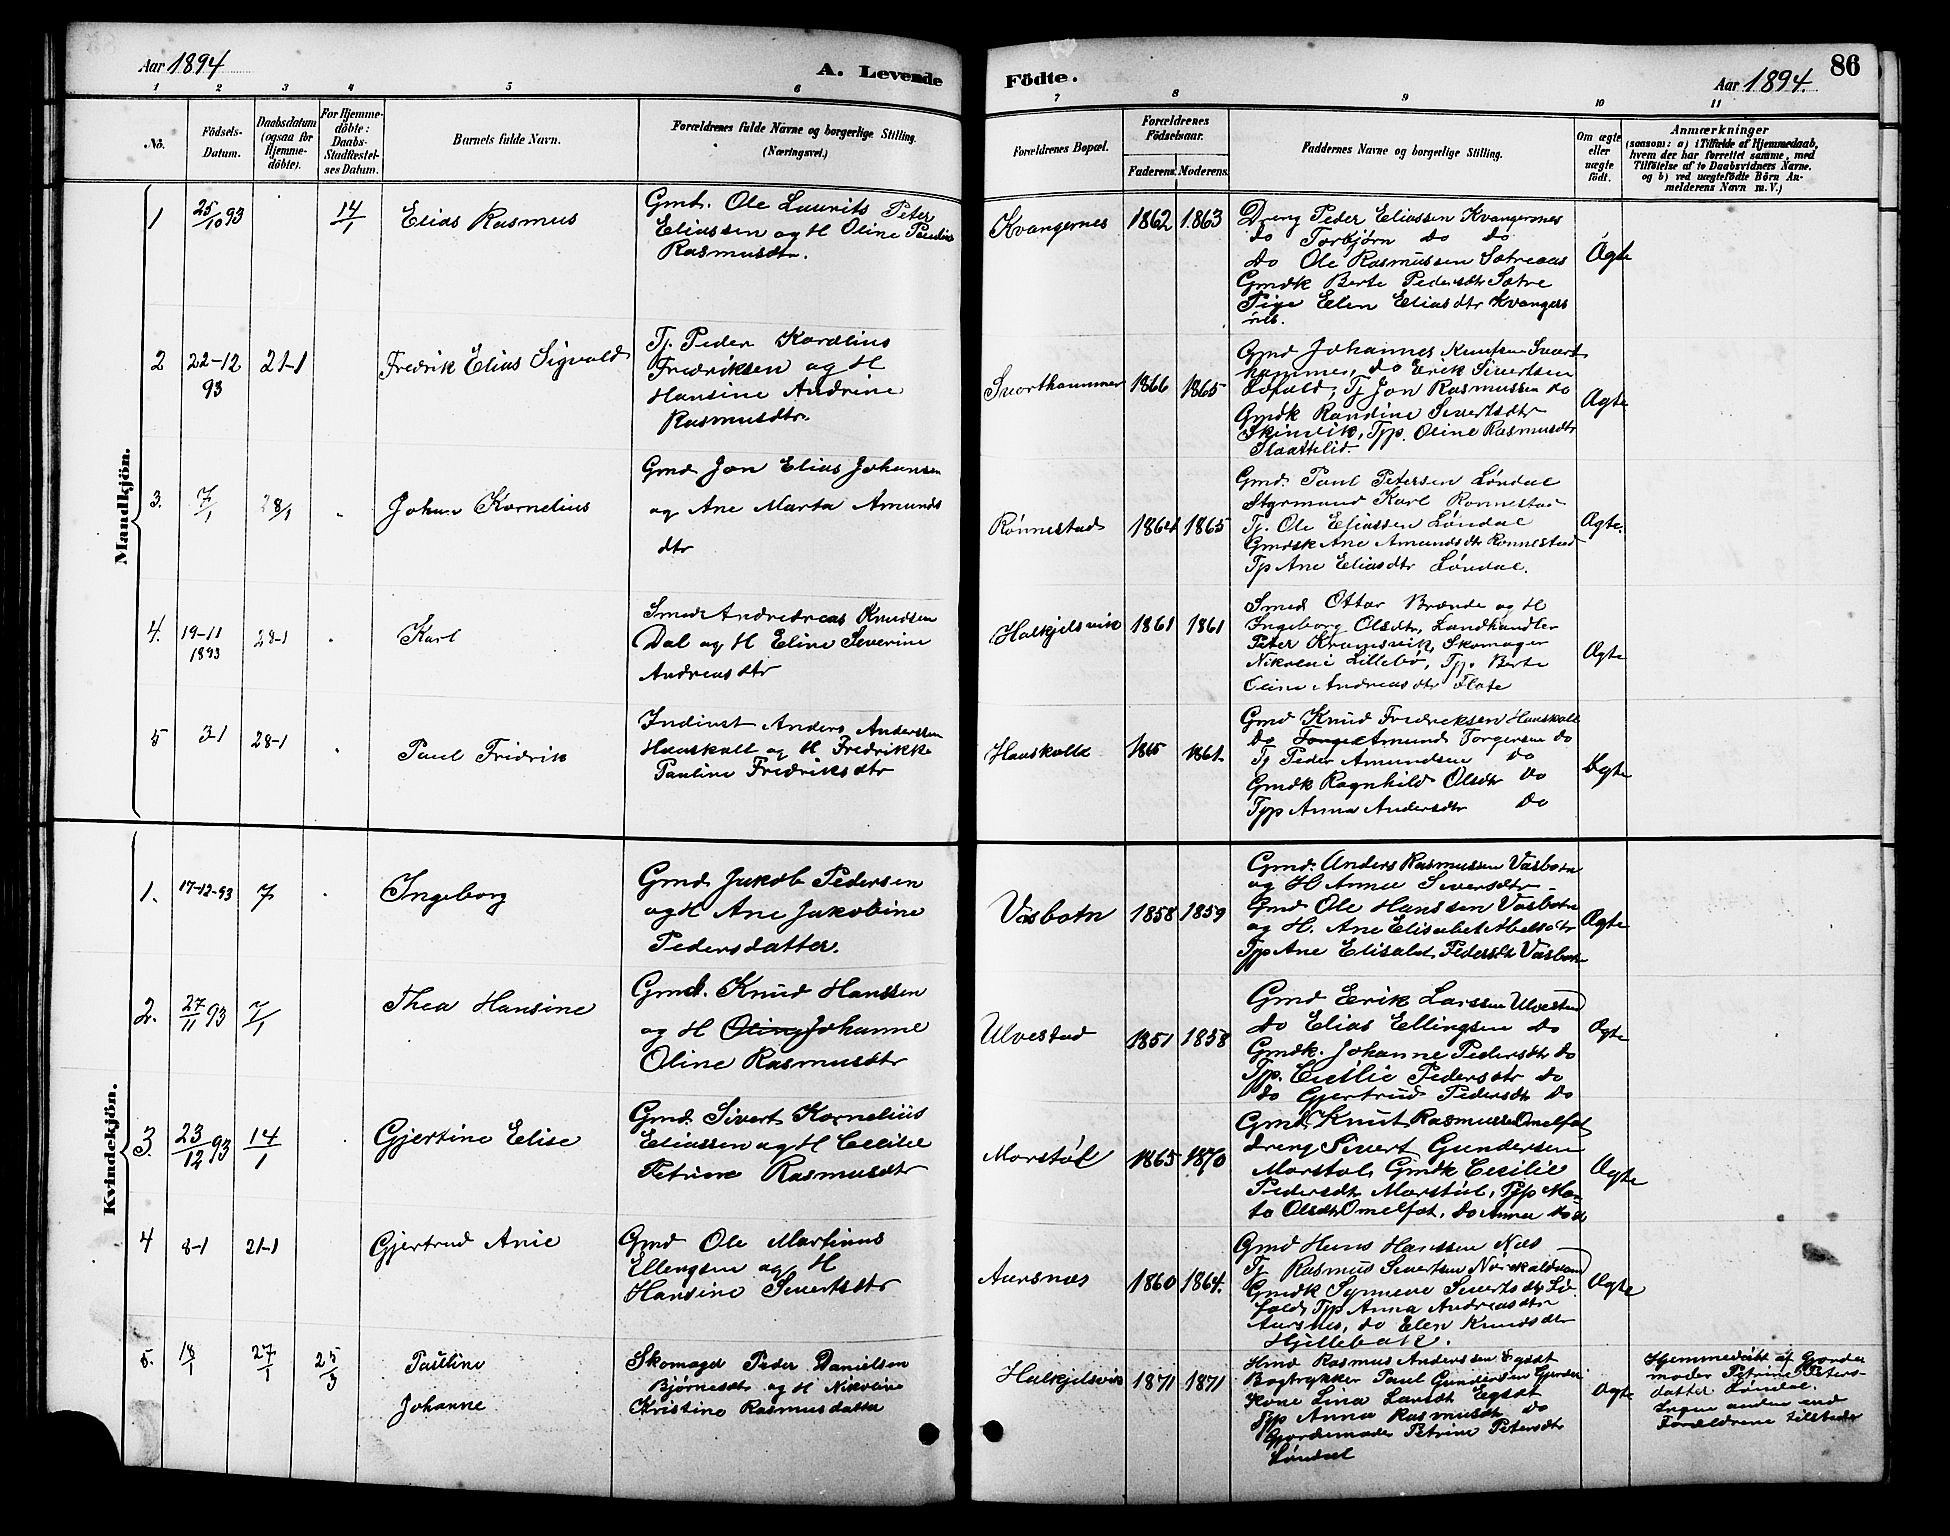 Aar 1894
A. Levende
Födte.
Aar 1894.
86
1 2 3 4 5 6 7 8 9 10 11
No.
Födsels-
Datum.
Daabsdatum
(ogsaa for
Hjemme-
döbte).
For Hjemme-
döbte:
Daabs-
Stadfæstel-
ses Datum.
Barnets fulde Navn.
Forældrenes fulde Navne og borgerlige Stilling.
(Næringsvei.)
Forældrenes Bopæl.
Forældrenes
Födselsaar.
Faderens. Moderens.
Faddernes Navne og borgerlige Stilling.
Om ægte
eller
uægte
födt.
Anmærkninger
(saasom: a) i Tilfælde af Hjemmedaab,
hvem der har forrettet samme, med
Tilföielse af to Daabsvidners Navne.
og b) ved uægtefödte Börn An-
melderens Navn m. V.)
Mandkjön.
1 25/10 93 14/1 Elias Rasmus
Gmd. Ole Laurits Peter
Eliassen og H Oline Pauline
Rasmusdtr.
Kvangernes 1862 1863
Dreng Peder Eliassen Kvangersnes
do Torbjørn do do
do Ole Rasmussen Sætreaas
Gmdk Berte Pedersdtr Sætre
Pige Elen Eliasdtr Kvangers
nes.
Ægte
2 22-12
93
21-1 Fredrik Elias Sigvald
Tj. Peder Kornelius
Fredriksen og H
Hansine Andrine
Rasmusdtr.
Svorthammer 1866 1865
Gmd Johannes Knutsen Svart
hammer, do Erik Sivertsen
Løfold, Tj Jon Rasmussen do
Gmdk Randine Sivertsdtr
Skinvik, Tjp. Oline Rasmusdtr
Slaattelid.
Ægte
3. 7/1 28/1 " Johan Kornelius
Gmd Jon Elias Johansen
og Ane Marta Amunds
dtr
Rönnestad 1864 1865
Gmd Paul Petersen Løndal
Styrmand Karl Rønnestad
Tj. Ole Eliassen Løndal
Gmdsk Ane Amundsdtr Rønnestad
Tjp Ane Eliasdtr Løndal.
Ægte.
4. 19-11
1893
28-1 " Karl
Smed Andredreas Knudsen
Dal og H Eline Severine
Andreasdtr
Halkjelsvik 1861 1861
Smed Ottar Brænde og H
Ingeborg Olsdtr, Landhandler
Peter Kramsvik, Skomager
Lillebø, Tjp. Berte
Oline Andreasdtr Flote
Ægte
5 3-1 28-1 " Paul Fridrik
Indinst Anders Anderssen
Hauskoll og H Fredrikke
Pauline Fredriksdtr
Hauskolld 1865 1861
Gmd Knud Fredriksen Hauskoll
do Amund Torgersen do
Tj Peder Amundsen do
Gmdk Ragnhild Olsdtr do
Tjp Anna Andersdtr do
Ægte
Kvindekjön.
1. 17-12-93 7 " Ingeborg
Gmd Jakob Pedersen
og H Ane Jakobine
Pedersdatter.
Vasbotn 1858 1859
Gmd. Anders Rasmussen Vasbotn
og H Anna Siversdtr -
Gmd Ole Hanssen Vasbotn
og H. Ane Elisabet Abelsdtr
Tjp Ane Elisabet Pedersdtr Vasbotn
Ægte
2. 27/11 93 7/1 Thea Hansine
Gmd. Knud Hanssen
og H Oline Johanne
Oline Rasmusdtr
Ulvestad 1851 1858
Gmd Erik Larssen Ulvestad
do Elias Ellingsen do
Gmdk. Johanne Pedersdtr do
Tjp. Cecilie Pedersdtr do
do Gjertrud Pedersdtr do
Ægte
3. 23/12 93 14/1 Gjertine Elise
Gmd. Sivert Kornelius
Eliassen og H Cecilie
Petrine Rasmusdtr
Morstøl 1865 1870
Gmd Knut Rasmussen Omelfot
dreng Sivert Gundersen
Morstøl, Gmdk Cecilie
Pedersdtr Morstøl, Tjp Mar-
ta Olsdtr Omelfot, do Anna do do
Ægte
4 8-1 21-1 Gjertrud Anie
Gmd Ole Martinus
Ellengsen og H
Hansine Sivertsdtr
Aursnes 1860 1864.
Gmd Hans Hanssen Næs
Tj Rasmus Sivertsen
Gmdk Synneve Sivertsdtr Lø-
fold, Tjp Anna Andreasdtr
Aursnes, do Elen Knudsdtr
Hjellebak.
Ægte
5. 18/1 27/1 25/3 Pauline
Johanne
Skomager Peder Danielsen
Bjørnesdtr og H Nikoline
Kristine Rasmusdatter
Halkjelsvik 1871 1871
Hmd Rasmus Anderssen Egsæt
Bogtrykker Paul Gundersen
Kone Lina Egsæt
Tjp Anna Rasmusdtr do
Gjordemoder Petrine Petersdtr
Løndal
Ægte
Hjemmedøbt af Gjorde-
moder Petrine Peters-
datter Løndal.
Ingen anden end
Forældrene tilstede